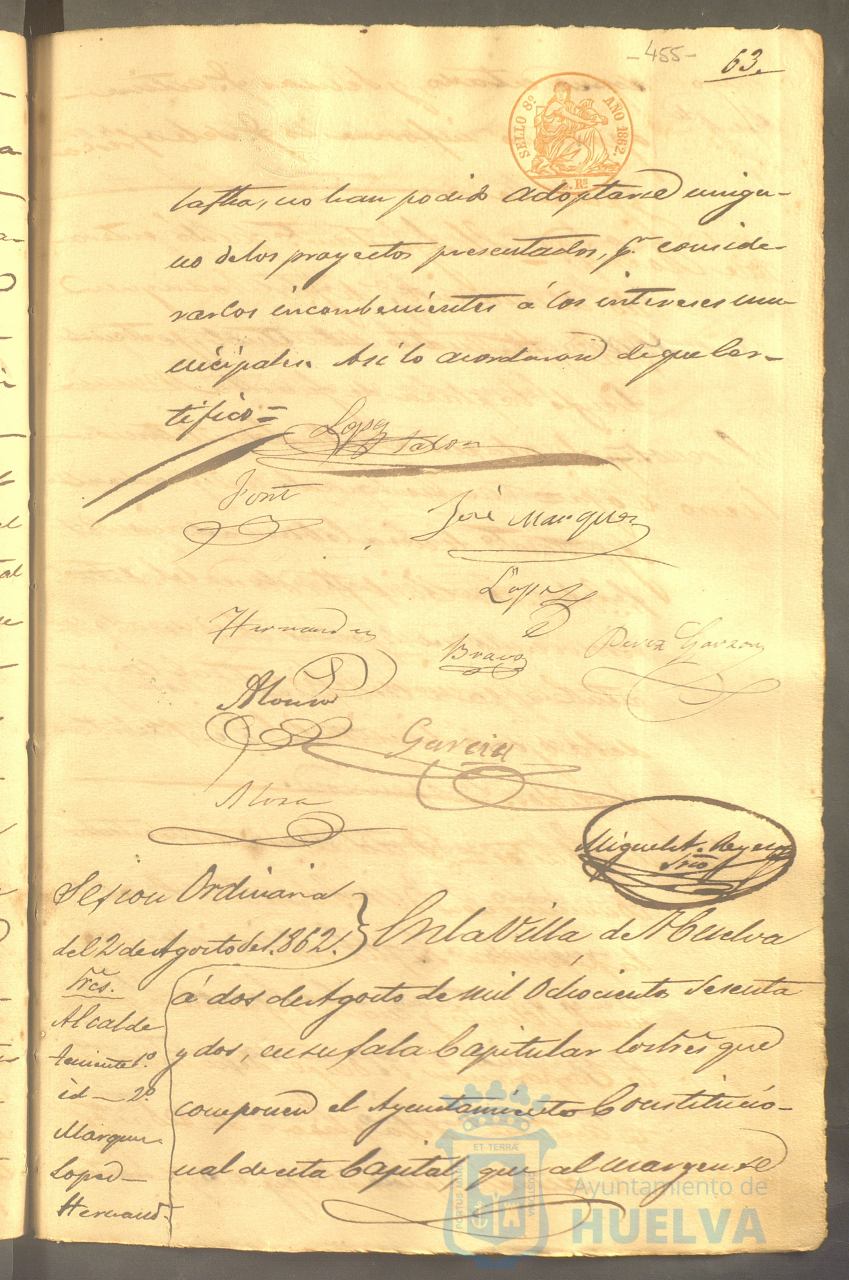 -455-
63.
SELLO 8º AÑO 1862.
no han podido adoptarse ningu-
no de los proyectos presentados, pr. conside-
rarlos incombenientes á los intereses mu-
nicipales. Asi lo acordaron de que Cer-
tifico=
Lopez
Font
José Marquez
Lopez
Hernandez
Bravo
Perez Garzon
Alonso
Garcia
Mora
Miguel A. Reyes
Srio
Sesion Ordinaria
del 2 de Agosto de 1.862.
Sres.
Alcalde
Teniente 1º
id - 2º
Marquez
Lopez
Hernand.
En la Villa de Huelva
á dos de Agosto de mil Ochocientos Sesenta
y dos, en su Sala Capitular los Sres que
componen el Ayuntamiento Constitucio-
nal de esta Capital, que al margen se
ET TERRÆ
Ayuntamiento de
HUELVA